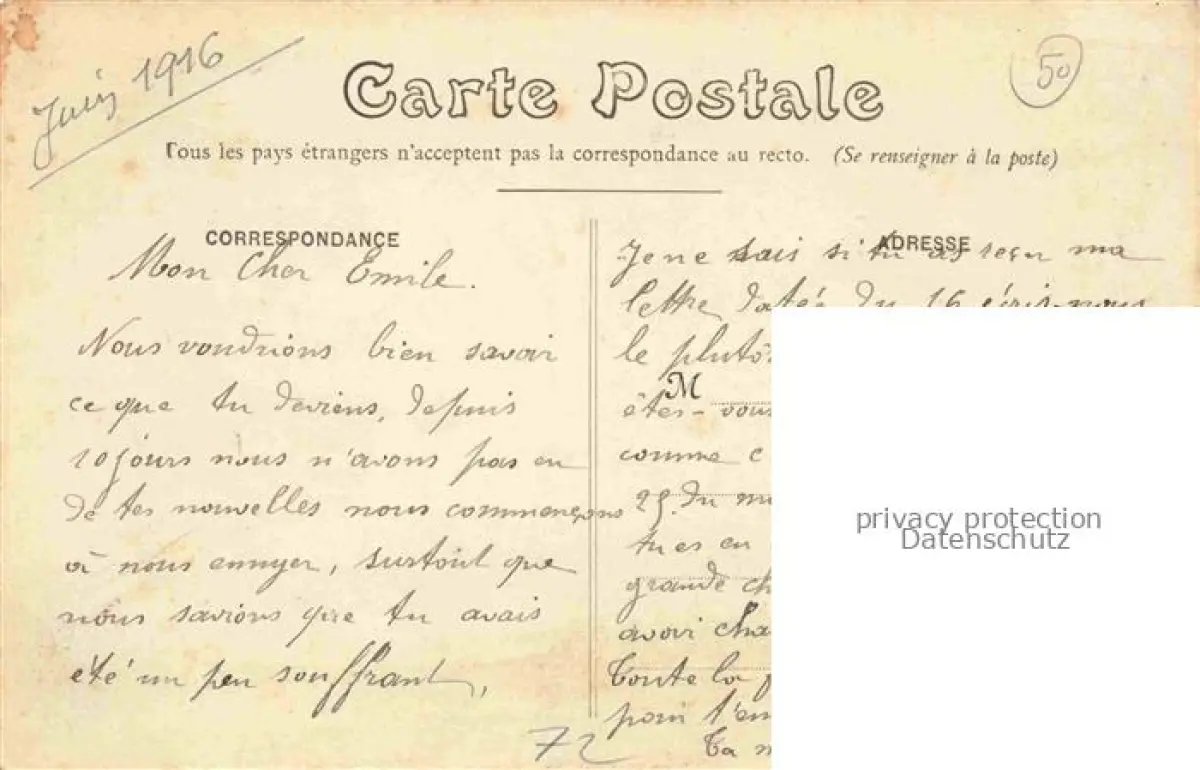 Juin 1916
50
Carte Postale
Tous les pays étrangers n'acceptent pas la correspondance au recto. (Se renseigner à la poste)
CORRESPONDANCE
Mon Cher Emile.
Nous voudrions bien savoir
ce que tu deviens, depuis
10 jours nous n'avons pas eu
de tes nouvelles nous commençons
à nous ennuyer, surtout que
nous savions que tu avais
été un peu souffrant,
72
ADRESSE
Je ne sais si tu as reçu ma
lettre datée du 16 écris-nous
le plutô
M
êtes-vous
comme c
25 du
tu es en
grande ch
avoir cha
Toute la
pour t'em
Ta
privacy protection
Datenschutz